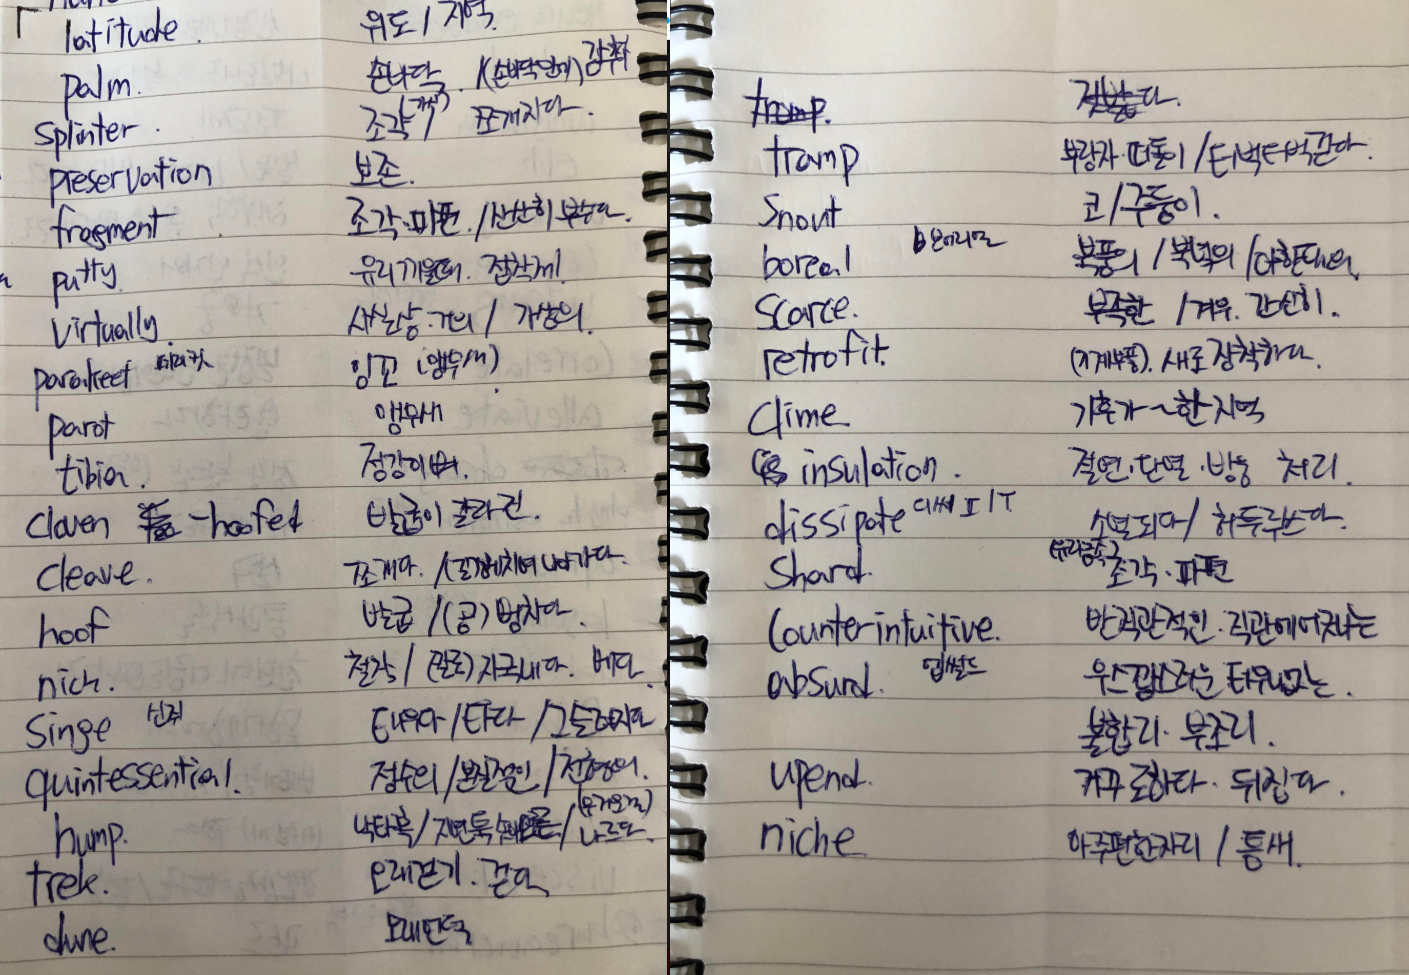 latitude. 위도 / 지역.
palm. 손바닥. /(손바닥 안에) 감추
splinter. 조각 쪼개지다.
preservation 보존.
fragment 조각·파편. /산산히 부수다.
putty. 유리 끼울때. 접착제
virtually. 사실상·거의 / 가상의.
parakeet 패러킷 잉꼬 (앵무새)
parot 앵무새
tibia. 정강이뼈.
cloven -hoofed 발굽이 갈라진.
cleave. 쪼개다. /(로)헤치며 나아가다.
hoof 발굽 /(공) 뻥차다.
nick. 철각 / (칼로) 자국내다. 베다.
singe 신쥐 태우다 /타다 /그을려지다
quintessential. 정수의 /본질적인 /전형의.
hump. 낙타혹 / 지면툭 /(무거운걸) 나르다.
trek. 오래걷기. 걷다.
dune. 모래언덕
tramp. 짓밟다.
tramp 부랑자·떠돌이 /터벅터벅걷다.
Snout 코 /주둥이.
boreal 북풍의 /북쪽의 /아한대의.
Scarce. 부족한 /겨우. 간신히.
retrofit. (기계부품). 새로 장착하다.
Clime 기후가 ~한 지역
insulation. 절연·단열·방음 처리.
dissipate 소멸되다/ 허투루쓰다.
Shard. (유리·금속) 조각·파편
Counterintuitive. 반직관적인·직관에어긋나는
absurd. 앱썰드 우스꽝스러운 터무니없는.
불합리·부조리.
upend. 거꾸로하다·뒤집다.
niche 아주편한자리 / 틈새.